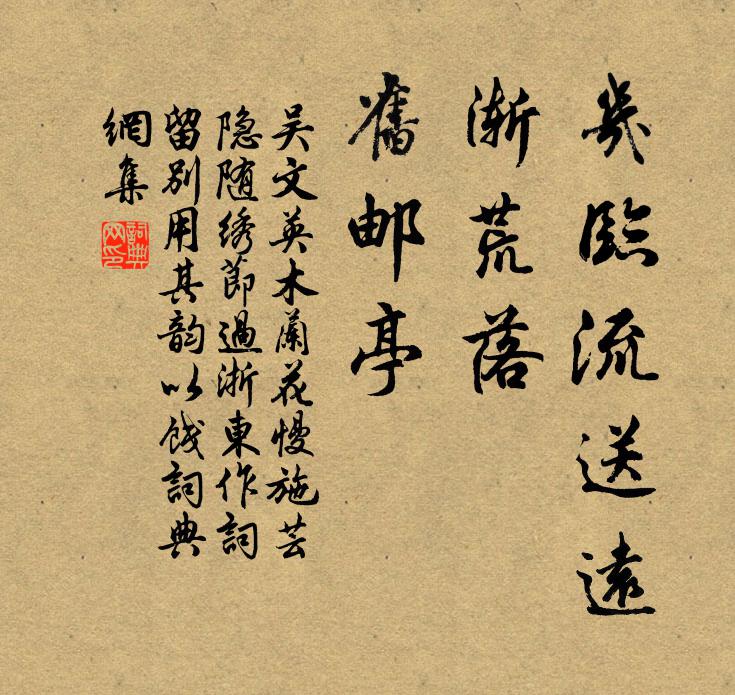 幾臨流送遠
漸荒落
舊邮亭
吴文英木蘭花慢施芸
隐随绣節過浙東作詞
留别用其韵以饯詞典
網集
詞典
网印